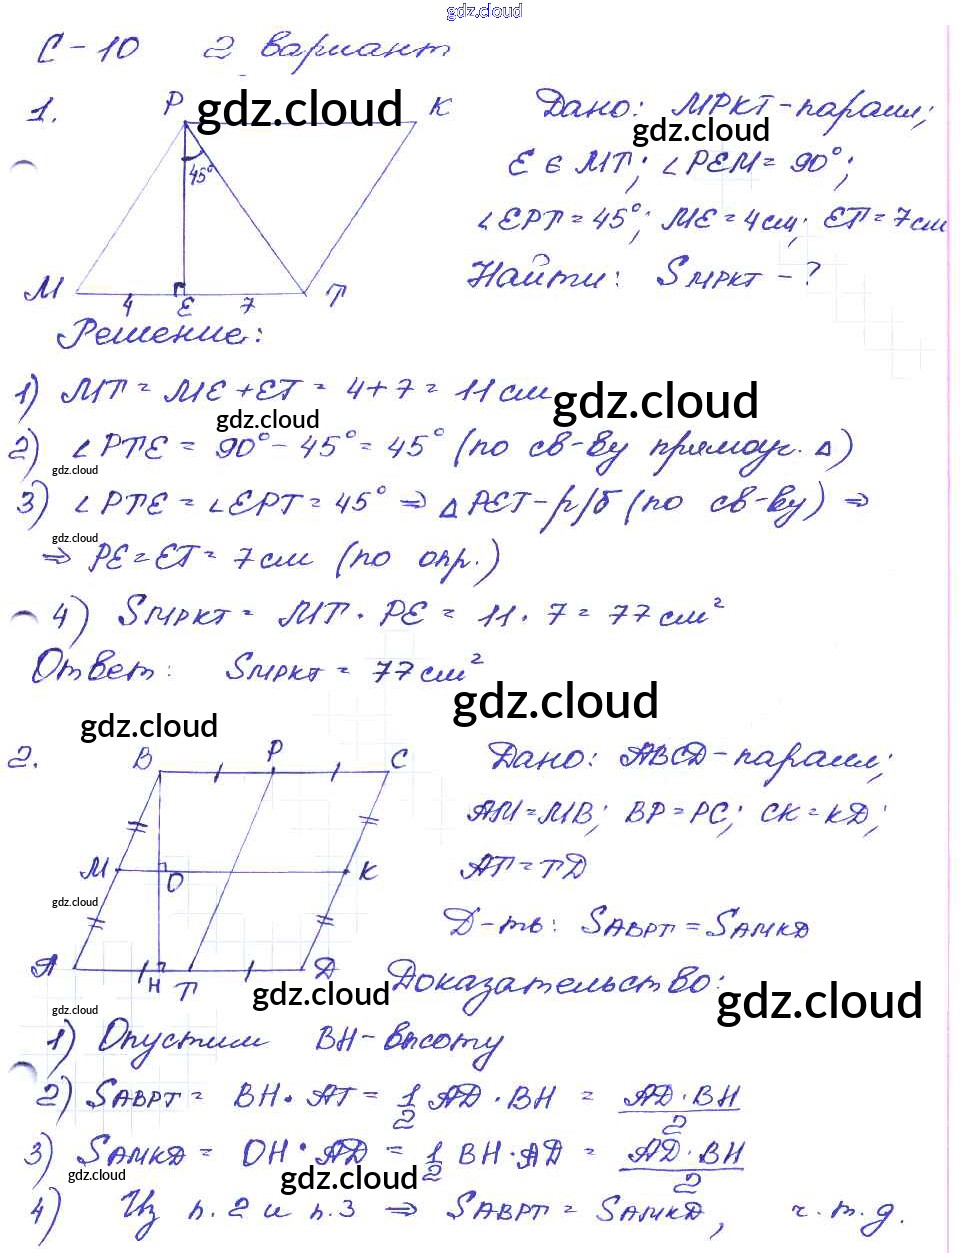 gdz.cloud
С-10 2 вариант
1. P gdz.cloud K Дано: MPKT-паралл;
gdz.cloud
45° E ∈ MT; ∠PEM = 90°;
∠EPT = 45°; ME = 4см; ET = 7см
M 4 E 7 T Найти: SMPKT - ?
Решение:
1) MT = ME + ET = 4 + 7 = 11 см gdz.cloud
gdz.cloud
2) ∠PTE = 90° - 45° = 45° (по св-ву прямоуг. Δ)
gdz.cloud
3) ∠PTE = ∠EPT = 45° ⇒ Δ PET - р/б (по св-ву) ⇒
gdz.cloud
⇒ PE = ET = 7 см (по опр.)
4) SMPKT = MT · PE = 11 · 7 = 77 см²
Ответ: SMPKT = 77 см²
gdz.cloud
gdz.cloud
2. B P C Дано: ABCD - паралл;
AM = MB; BP = PC; CK = KD;
M O K AT = TD
gdz.cloud
Д-ть: SABPT = SAMKD
A H T D Доказательство:
gdz.cloud gdz.cloud
gdz.cloud
1) Опустим BH - высоту
2) SABPT = BH · AT = 1/2 AD · BH = AD · BH / 2
3) SAMKD = OH · AD = 1/2 BH · AD = AD · BH / 2
gdz.cloud gdz.cloud
4) Из п. 2 и п. 3 ⇒ SABPT = SAMKD, ч.т.д.